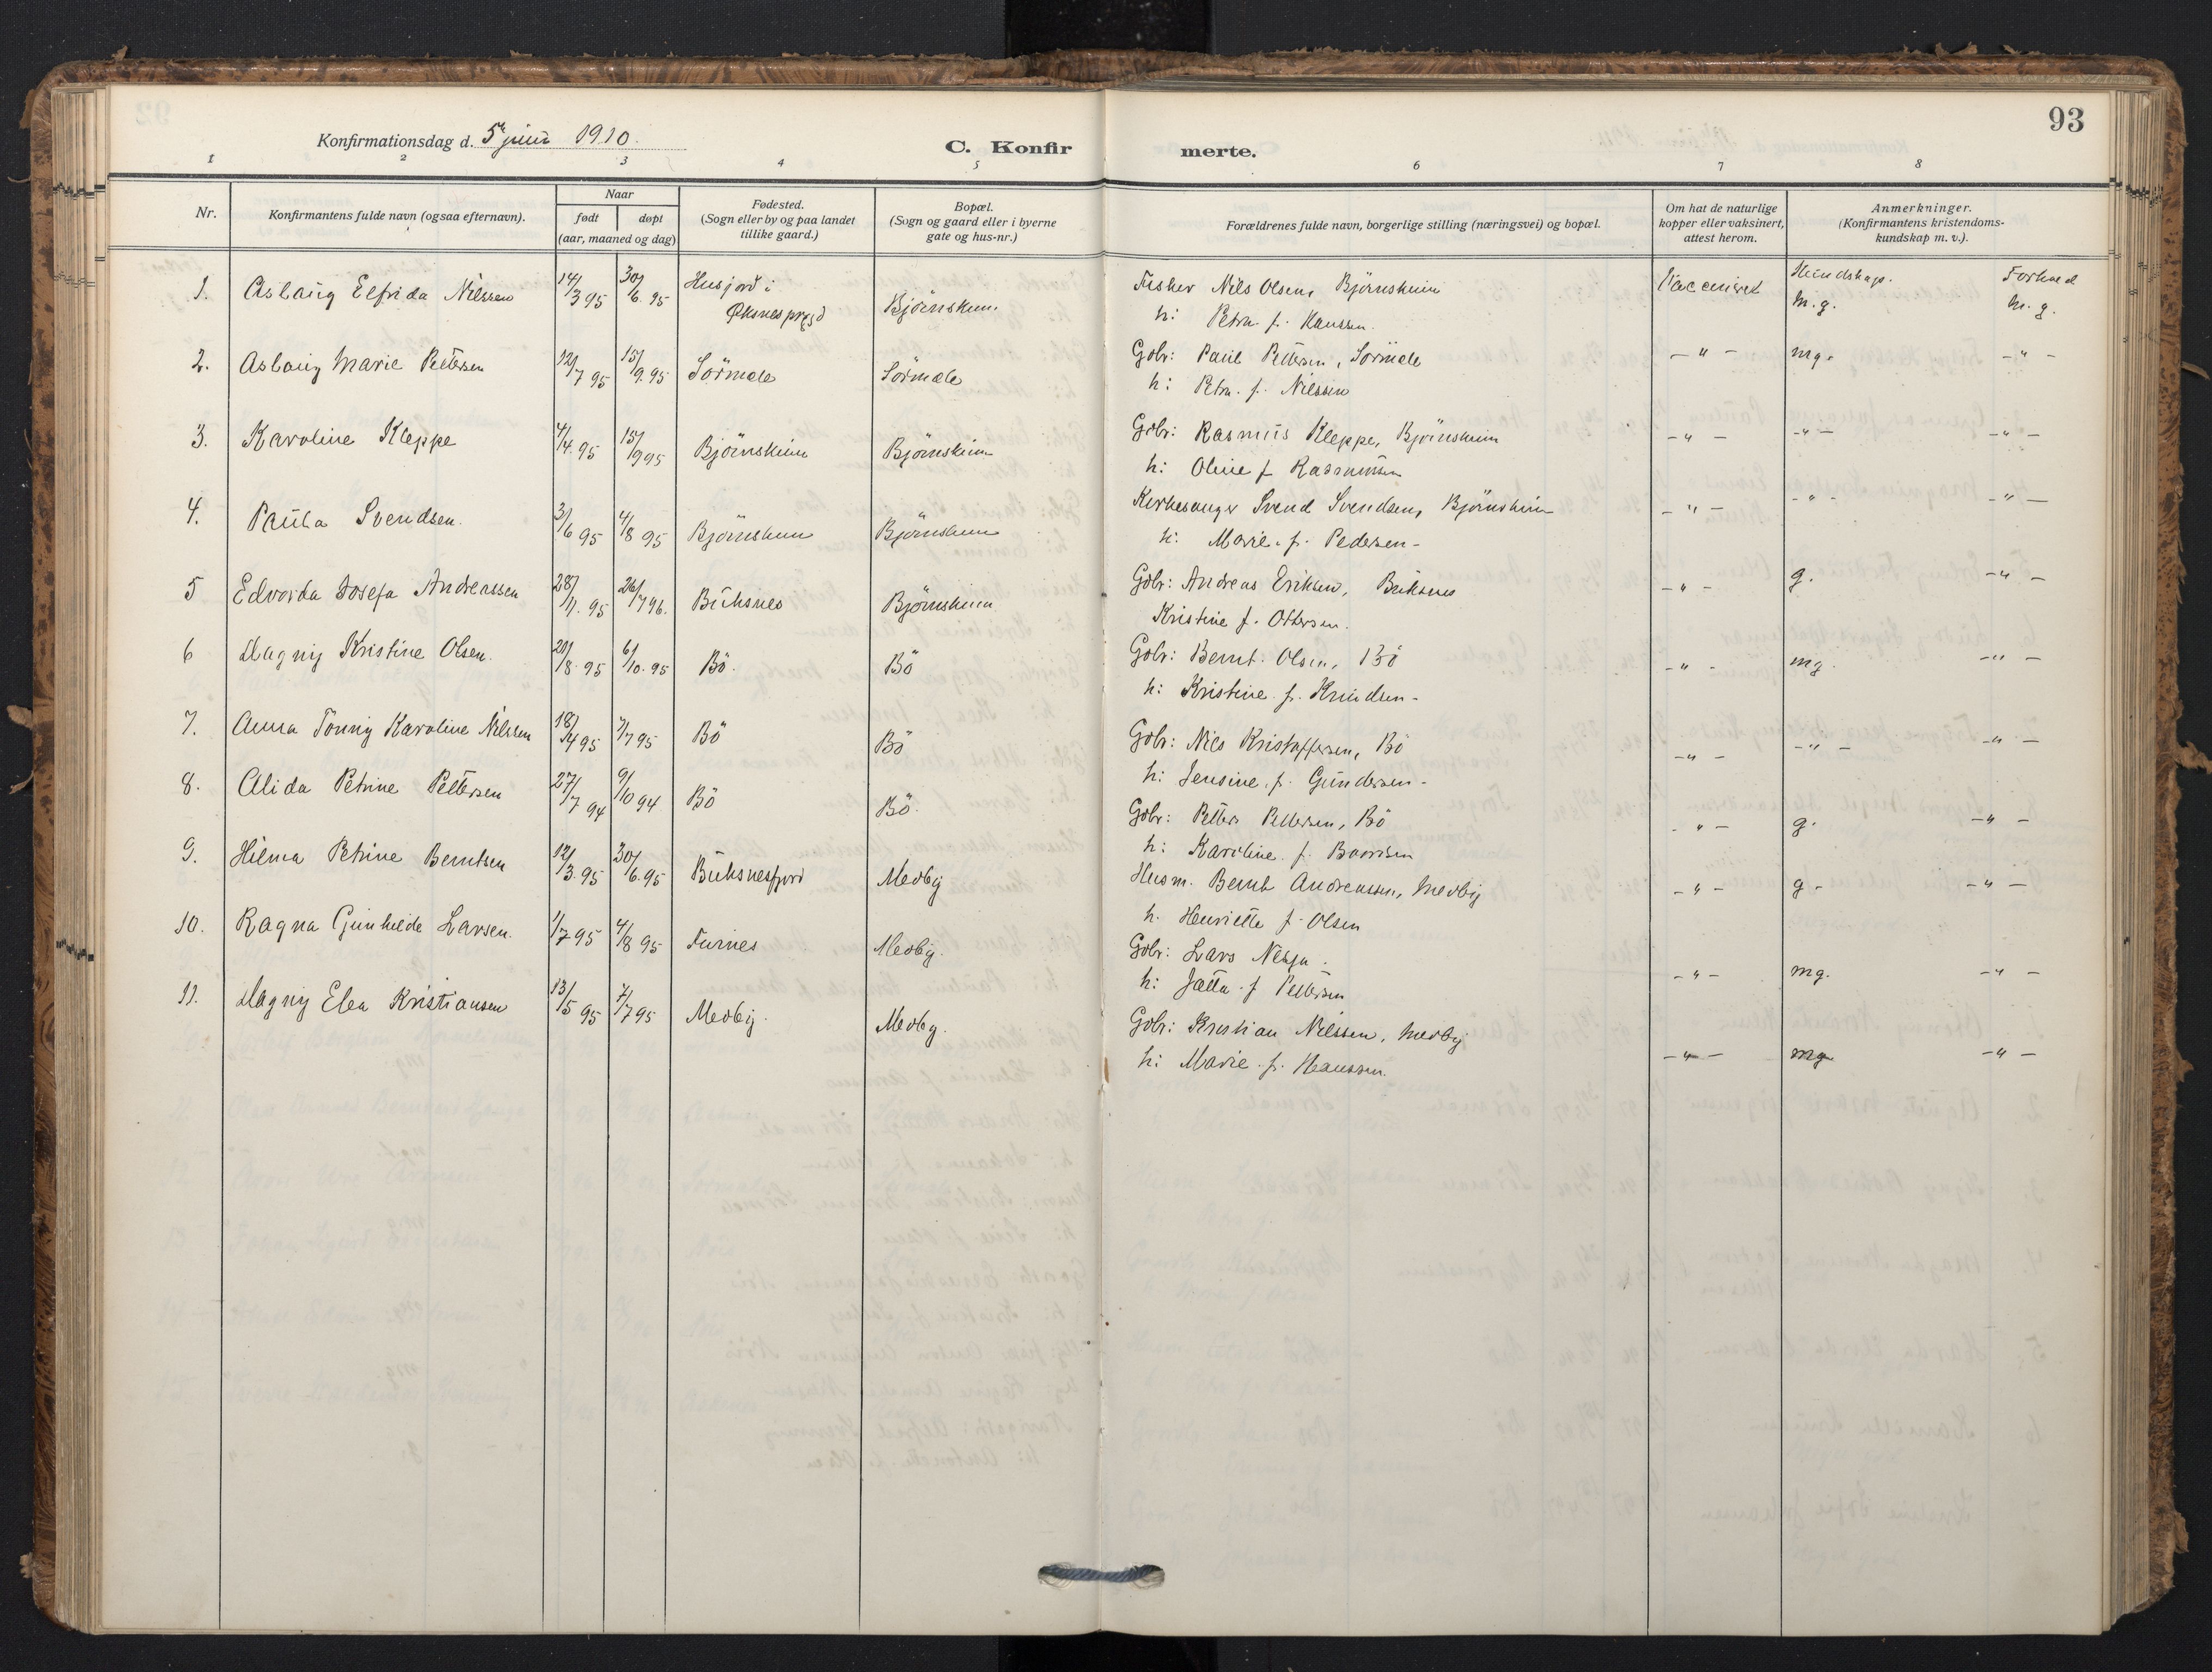 93
Konfirmationsdag d. 5te juni 1910.
C. Konfirmerte.
1 2 3 4 5 6 7 8
Nr.
Konfirmantens fulde navn (ogsaa efternavn).
Naar
født døpt
(aar, maaned og dag)
Fødested.
(Sogn eller by og paa landet
tillike gaard.)
Bopæl.
(Sogn og gaard eller i byerne
gate og hus-nr.)
Forældrenes fulde navn, borgerlige stilling (næringsvei) og bopæl.
Om hat de naturlige
kopper eller vaksinert,
attest herom.
Anmerkninger.
(Konfirmantens kristendoms-
kundskap m. v.).
1. Aslaug Elfrida Nilssen 14/3 95 30/6. 95 Husjord i Øksnes prgjd Björnskinn. Fisker Nils Olsen, Björnskinn Vaccineret Kundskap. m.g. Forhold m. g.
h: Petra f. Hanssen.
2. Aslaug Marie Pettersen 12/7 95 15/9. 95 Sörmele Sörmele Gbr: Paul Pettersen, Sörmele - " - mg. - " -
h: Petra f. Nilssen
3. Karoline Kleppe 4/4. 95 15/9 95 Björnskinn Björnskinn Gbr: Rasmus Kleppe, Björnskinn - " - - " - - " -
h: Oline f. Rasmussen
4. Paula Svendsen. 3/6 95 4/8 95 Björnskinn Björnskinn Kirkesanger Svend Svendsen, Björnskinn - " - - " - - " -
h: Marie f. Pedersen -
5 Edvarda Josefa Andreassen 28/11. 95 26/7 96. Buksnes Björnskinn Gbr: Andreas Eriksen, Buksnes - " - g. - " -
Kristine f. Ottersen.
6 Dagny Kristine Olsen. 21/8 95 6/10. 95 Bö. Bö Gbr: Bernt Olsen, Bö - " - mg. - " -
h: Kristine f. Knudsen -
7. Anna Tönny Karoline Nilssen 18/4 95 7/7 95 Bö Bö Gbr: Nils Kristoffersen, Bö - " - - " - - " -
h: Jensine f. Gundersen -
8. Alida Petrine Pettersen 27/7 94 9/10 94 Bö Bö. Gbr: Petter Pettersen, Bö - " - g. - " -
h: Karoline f. Baardsen
9. Hilma Petrine Berntsen 12/3. 95 30/6. 95 Buksnesfjord Medby Husm. Bernt Andreassen, Medby - " - g - - " -
h. Henriette f. Olsen
10. Ragna Gunhilde Larsen. 1/7 95 4/8 95 Furnes Medby. Gbr: Lars Nesje. - " - mg. - " -
h: Jætta f. Pettersen
11. Dagny Elea Kristiansen 13/5 95 7/7 95 Medby. Medby. Gbr: Kristian Nilssen, Medby - " - mg - " -
h: Marie f. Hanssen.